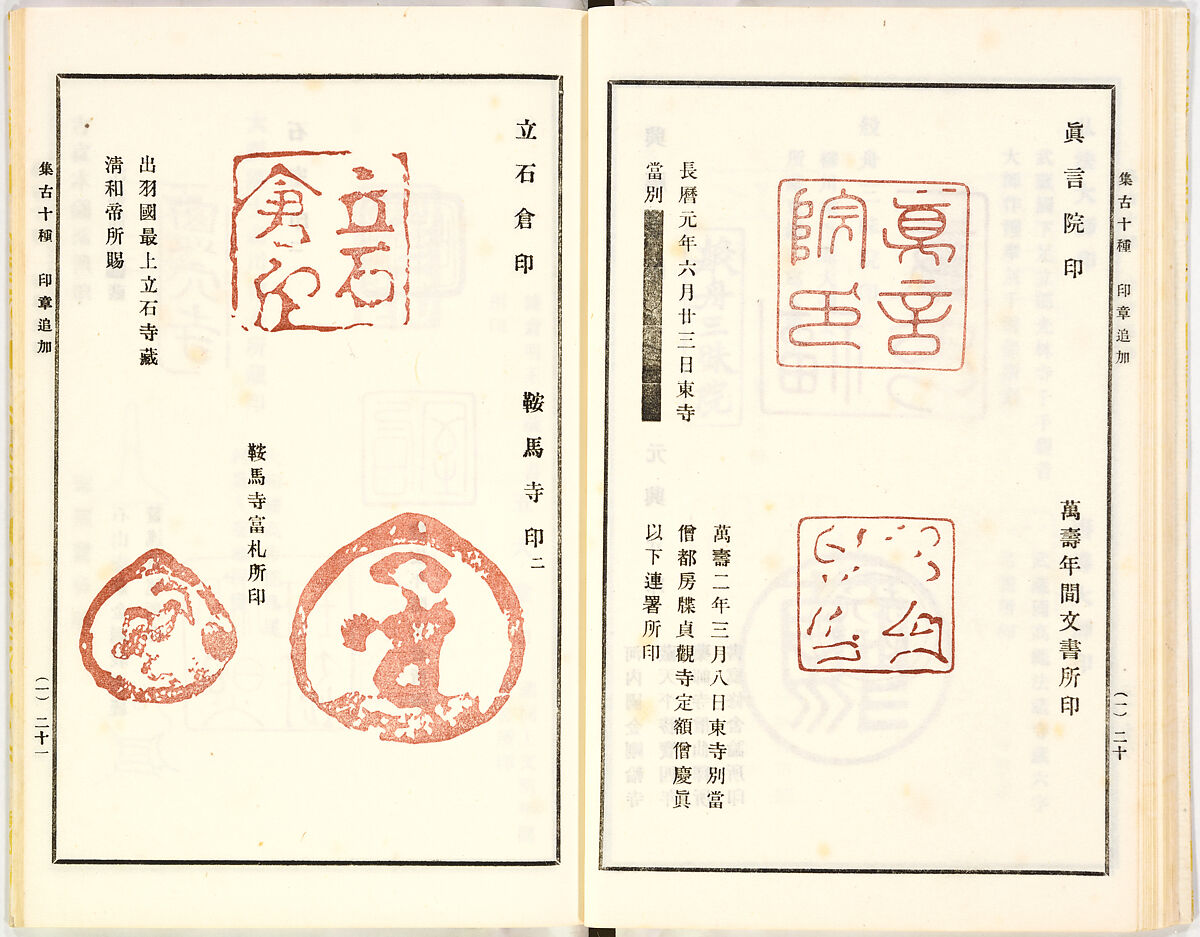 集古十種 印章追加
(一) 二十
眞言院印
眞言院印
長曆元年六月廿三日東寺
當別
萬壽年間文書所印
萬壽二年三月八日東寺別當
僧都房牒貞觀寺定額僧慶眞
以下連署所印
立石倉印
立石倉印
出羽國最上立石寺藏
清和帝所賜
鞍馬寺印二
鞍馬寺富札所印
集古十種 印章追加
(一) 二十一